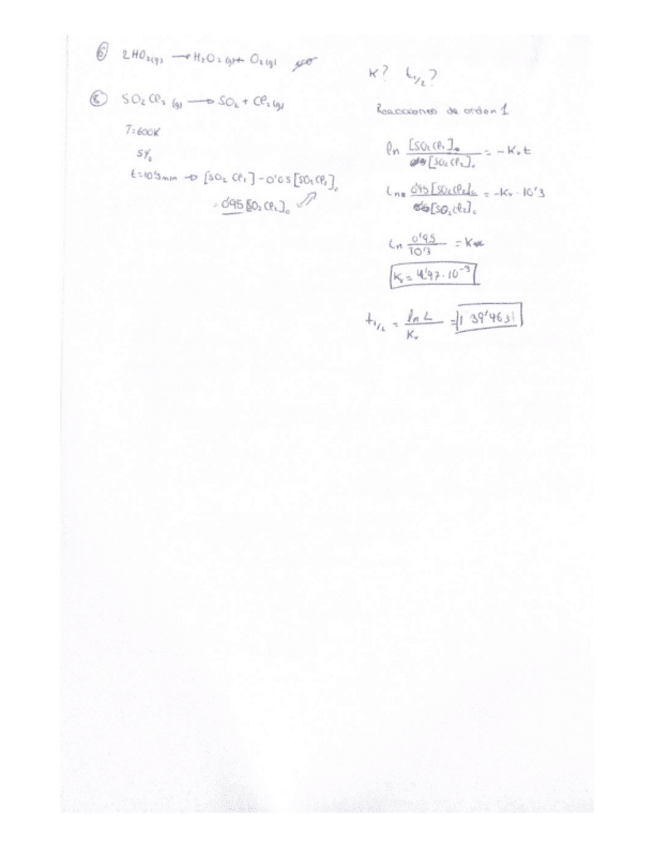 6 2HO2(g) → H2O2(g) + O2(g)
8 SO2Cl2(g) → SO2 + Cl2(g)
T=600K
5%
t=10'3min → [SO2Cl2] - 0'05[SO2Cl2]0
= 0'95[SO2Cl2]0
K? t1/2?
Reacciones de orden 1
ln [SO2Cl2] / [SO2Cl2]0 = -K·t
Ln 0'95[SO2Cl2]0 / [SO2Cl2]0 = -K· 10'3
Ln 0'95 / 10'3 = K
K = 4'97·10^-3
t1/2 = ln 2 / K = 139'463